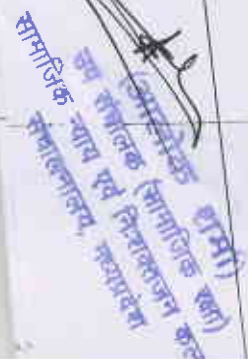 शर्मा)
उप संचालक (सामाजिक रक्षा)
सामाजिक न्याय एवं निःशक्तजन कल
संचालनालय, मध्यप्रदेश